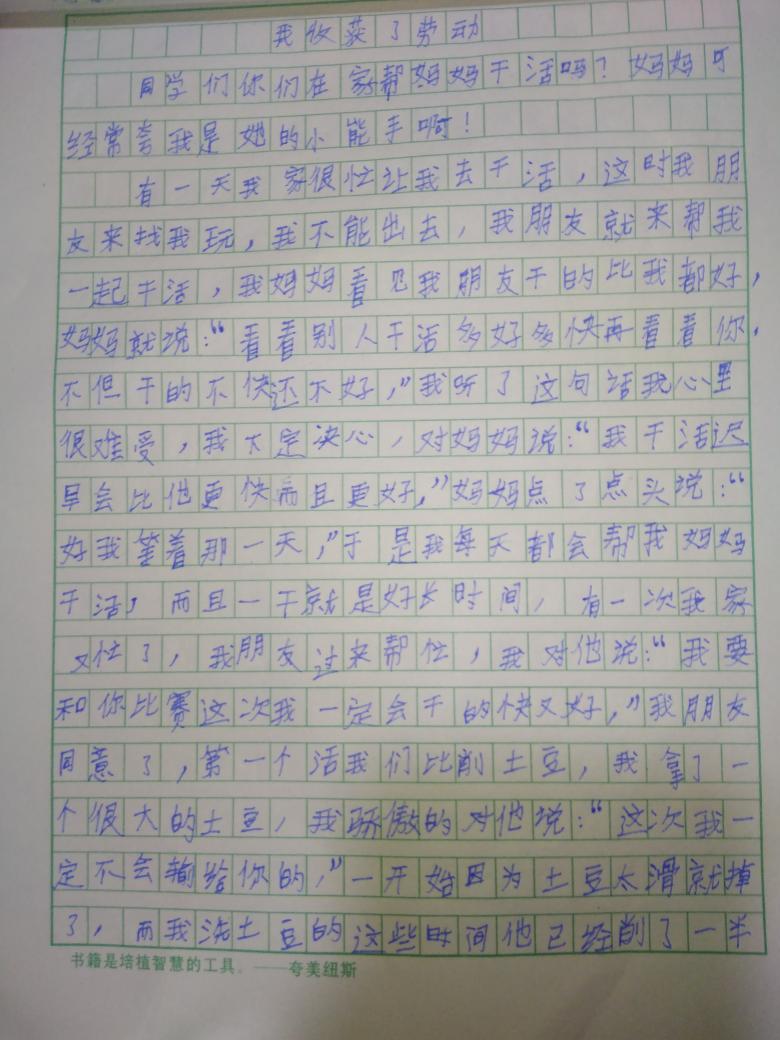 我收获了劳动
同学们你们在家帮妈妈干活吗？妈妈可
经常夸我是她的小能手啊！
有一天我家很忙让我去干活，这时我朋
友来找我玩，我不能出去，我朋友就来帮我
一起干活，我妈妈看见我朋友干的比我都好，
妈妈就说：“看看别人干活多好多快再看看你，
不但干的不快还不好，”我听了这句话我心里
很难受，我大定决心，对妈妈说：“我干活迟
早会比他更快而且更好，”妈妈点了点头说：“
好我等着那一天，”于是我每天都会帮我妈妈
干活，而且一干就是好长时间，有一次我家
又忙了，我朋友过来帮忙，我对他说：“我要
和你比赛这次我一定会干的快又好，”我朋友
同意了，第一个活我们比削土豆，我拿了一
个很大的土豆，我骄傲的对他说：“这次我一
定不会输给你的，”一开始因为土豆太滑就掉
了，而我洗土豆的这些时间他已经削了一半
书籍是培植智慧的工具。——夸美纽斯